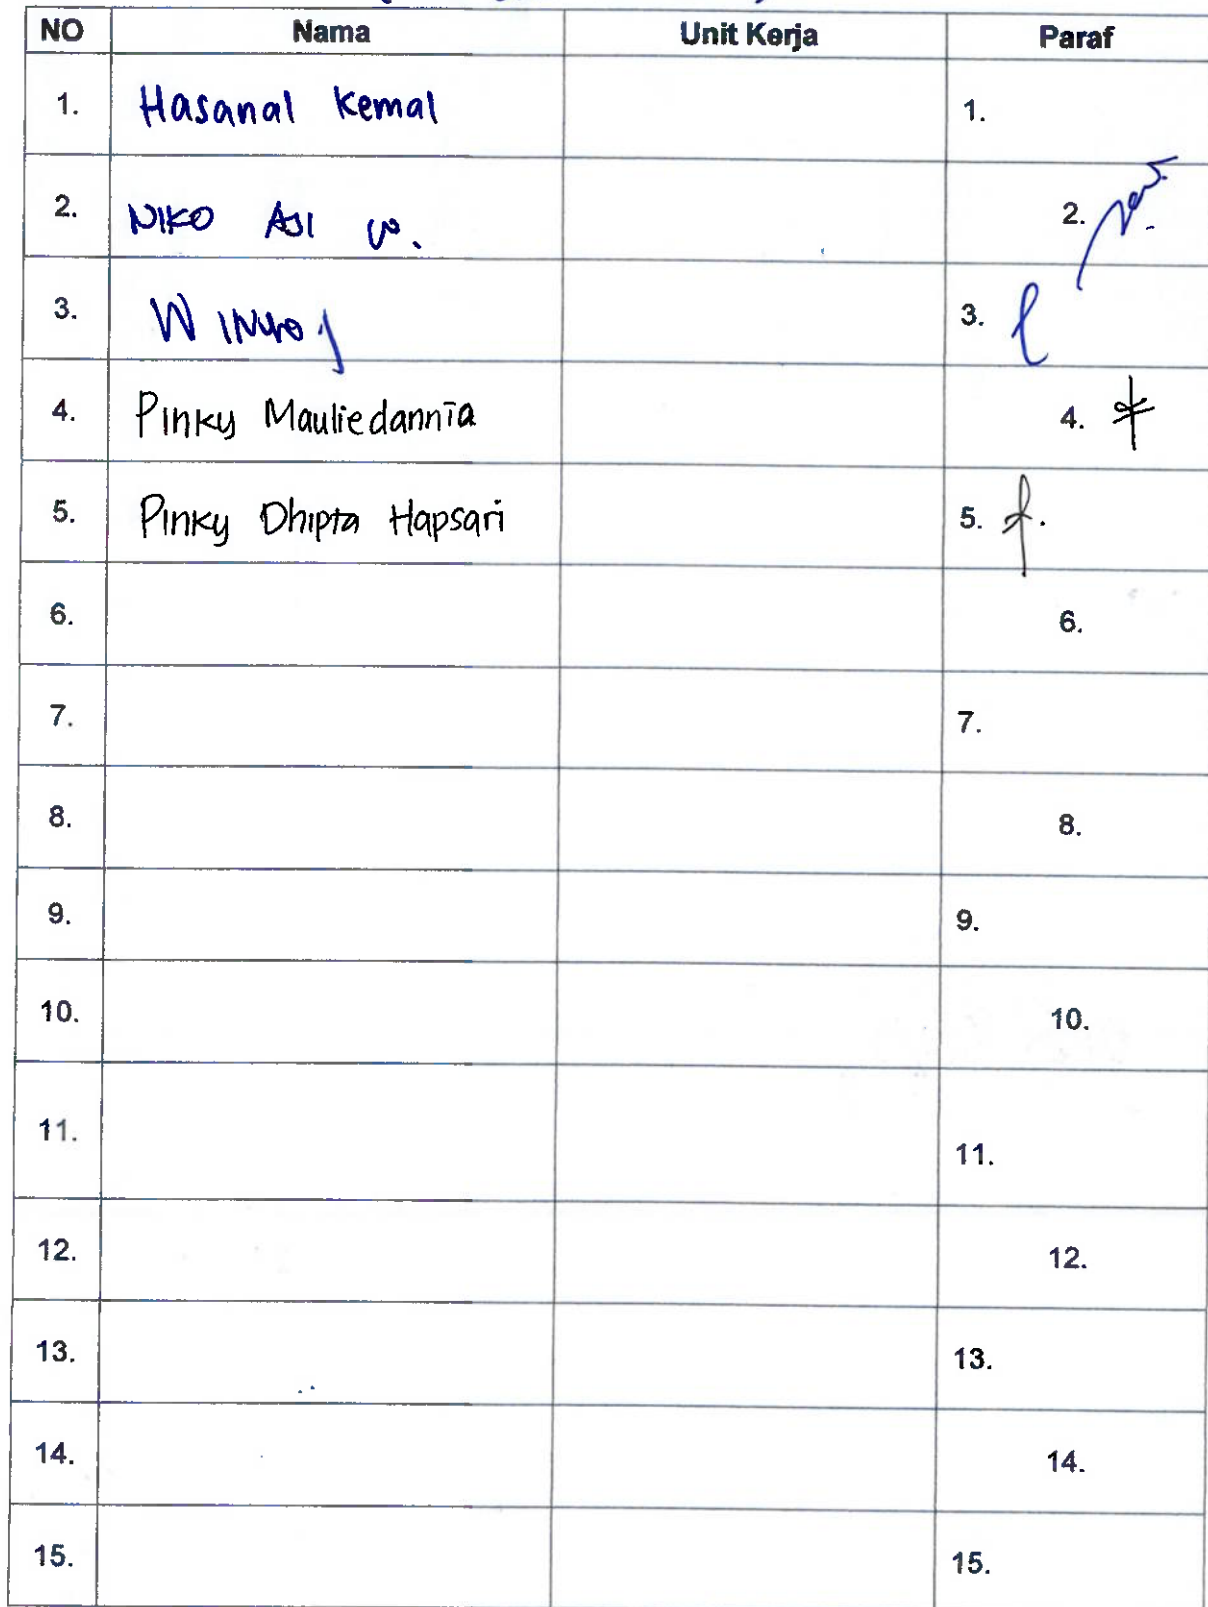 NO Nama Unit Kerja Paraf
1. Hasanal Kemal 1.
2. NIKO AJI W. 2.
3. 3.
4. Pinky Mauliedannia 4.
5. Pinky Dhipta Hapsari 5.
6. 6.
7. 7.
8. 8.
9. 9.
10. 10.
11. 11.
12. 12.
13. 13.
14. 14.
15. 15.